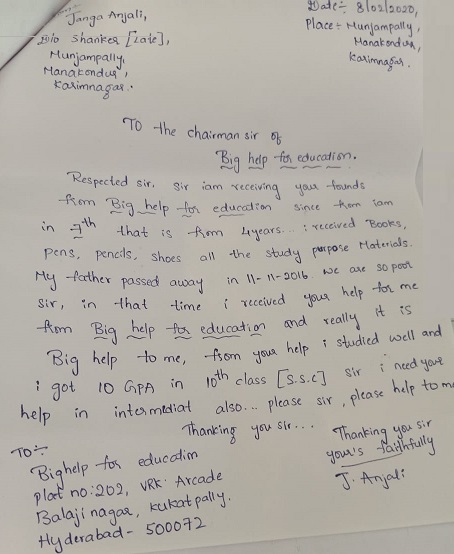 Janga Anjali,
D/o Shanker [Late],
Munjampally,
Manakondur,
Karimnagar.
Date:- 8/02/2020,
Place:- Munjampally,
Manakondur,
Karimnagar.
TO the chairman sir of
Big help for education.
Respected sir. Sir iam receiving your founds
from Big help for education since from iam
in 7th that is from 4years... i received Books,
pens, pencils, shoes all the study purpose Materials.
My father passed away in 11-11-2016. we are so poor
sir, in that time i received your help for me
from Big help for education and really it is
Big help to me, from your help i studied well and
i got 10 GPA in 10th class [S.S.C] sir i need your
help in intermediat also... please sir, please help to me
Thanking you sir...
Thanking you sir
your's faithfully
J. Anjali
TO:-
Bighelp for education
plot no:202, VRK Arcade
Balaji nagar, kukatpally.
Hyderabad- 500072